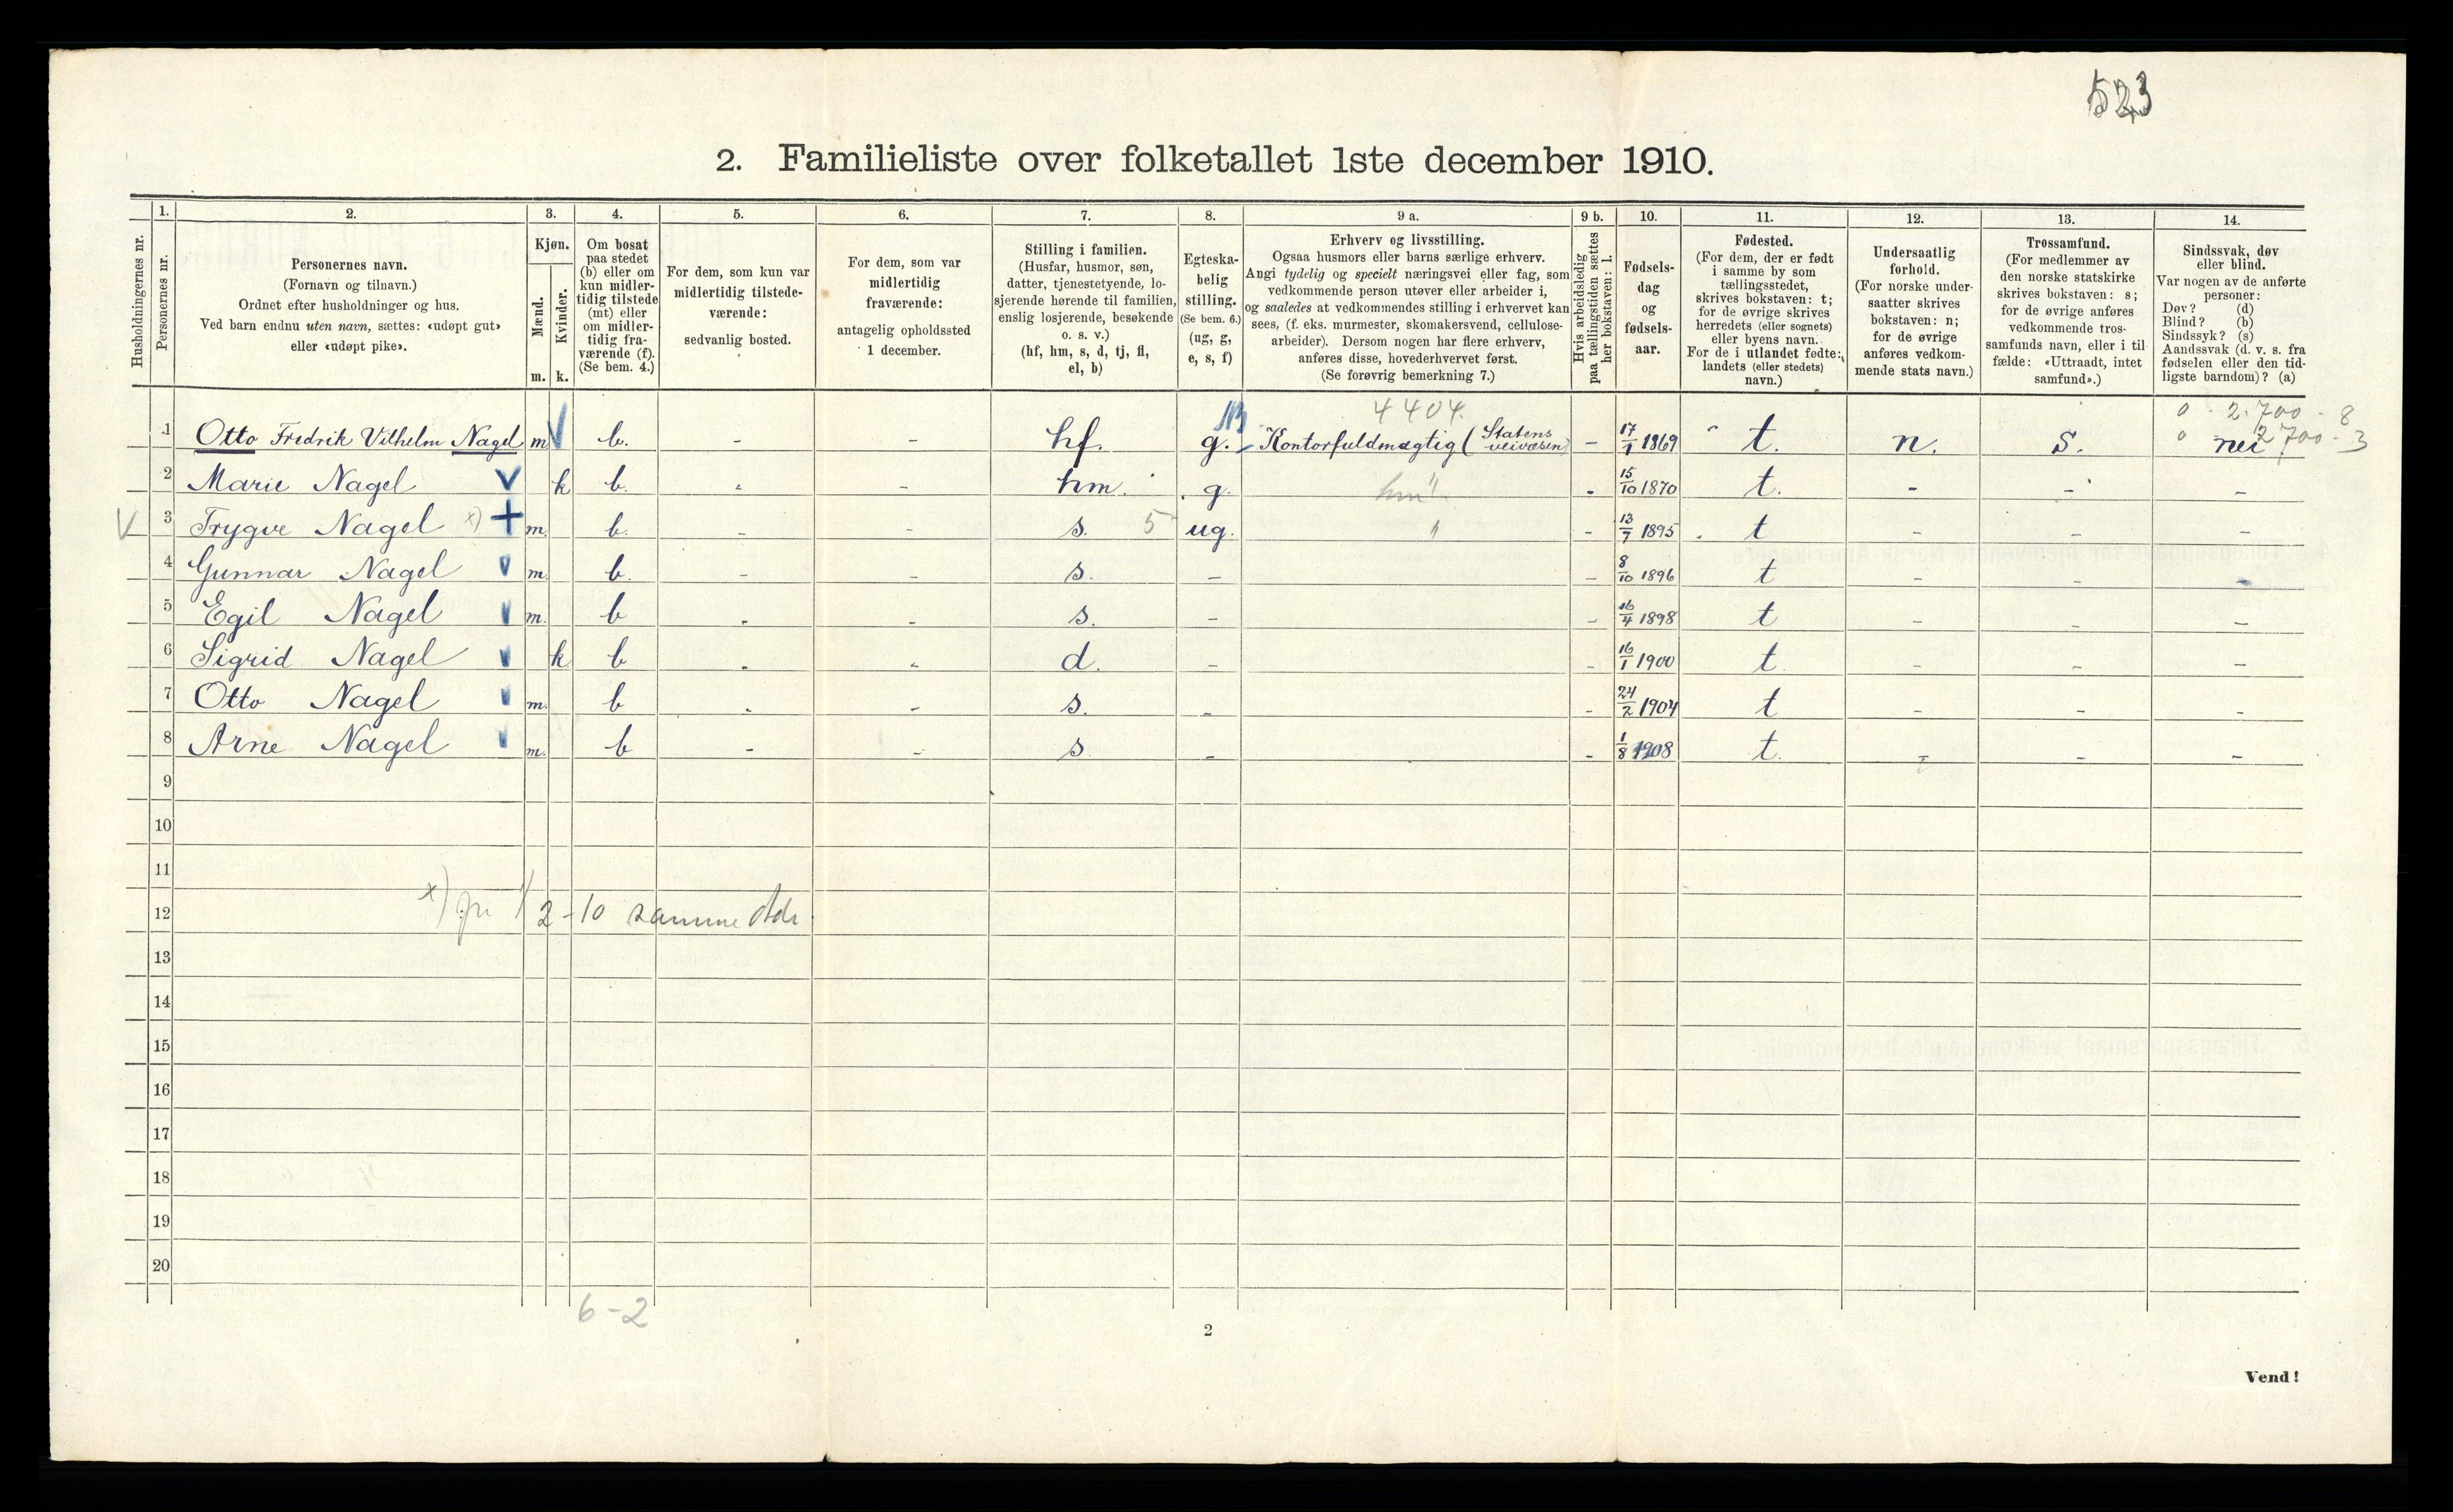 523
2. Familieliste over folketallet 1ste december 1910.
Husholdningernes nr.
1.
Personernes nr.
2.
Personernes navn.
(Fornavn og tilnavn.)
Ordnet efter husholdninger og hus.
Ved barn endnu uten navn, sættes: «udøpt gut»
eller «udøpt pike».
3.
Kjøn.
Mænd.
Kvinder.
m. k.
4.
Om bosat
paa stedet
(b) eller om
kun midler-
tidig tilstede
(mt) eller
om midler-
tidig fra-
værende (f).
(Se bem. 4.)
5.
For dem, som kun var
midlertidig tilstede-
værende:
sedvanlig bosted.
6.
For dem, som var
midlertidig
fraværende:
antagelig opholdssted
1 december.
7.
Stilling i familien.
(Husfar, husmor, søn,
datter, tjenestetyende, lo-
sjerende hørende til familien,
enslig losjerende, besøkende
o. s. v.)
(hf, hm, s, d, tj, fl,
el, b)
8.
Egteska-
belig
stilling.
(Se bem. 6.)
(ug, g,
e, s, f)
9 a.
Erhverv og livsstilling.
Ogsaa husmors eller barns særlige erhverv.
Angi tydelig og specielt næringsvei eller fag, som
vedkommende person utøver eller arbeider i,
og saaledes at vedkommendes stilling i erhvervet kan
sees, (f. eks. murmester, skomakersvend, cellulose-
arbeider). Dersom nogen har flere erhverv,
anføres disse, hovederhvervet først.
(Se forøvrig bemerkning 7.)
9 b.
Hvis arbeidsledig
paa tællingstiden sættes
her bokstaven: l.
10.
Fødsels-
dag
og
fødsels-
aar.
11.
Fødested.
(For dem, der er født
i samme by som
tællingsstedet,
skrives bokstaven: t;
for de øvrige skrives
herredets (eller sognets)
eller byens navn.
For de i utlandet fødte:
landets (eller stedets)
navn.)
12.
Undersaatlig
forhold.
(For norske under-
saatter skrives
bokstaven: n;
for de øvrige
anføres vedkom-
mende stats navn.)
13.
Trossamfund.
(For medlemmer av
den norske statskirke
skrives bokstaven: s;
for de øvrige anføres
vedkommende tros-
samfunds navn, eller i til-
fælde: «Uttraadt, intet
samfund».)
14.
Sindssvak, døv
eller blind.
Var nogen av de anførte
personer:
Døv? (d)
Blind? (b)
Sindssyk? (s)
Aandssvak (d. v. s. fra
fødselen eller den tid-
ligste barndom)? (a)
4404. 0 - 2.700 - 8
0 2700 - 3
1 Otto Fredrik Vilhelm Nagel m V b. - - hf. g. Kontorfuldmægtig (Statens veivæsen) - 17/1 1869 t. n. s. nei
2 Marie Nagel V k b. - - hm. g. hm - 15/10 1870 t. - - -
V 3 Trygve Nagel x) + m. b. - - s. 5 ug. - 13/7 1895 t - - -
4 Gunnar Nagel V m. b. - - s. - - 8/10 1896 t - - -
5 Egil Nagel V m. b - - s. - - 16/4 1898 t - - -
6 Sigrid Nagel V k b - - d. - - 16/1 1900 t. - - -
7 Otto Nagel V m. b - - s. - - 24/2 1904 t - - -
8 Arne Nagel V m. b - - s - - 1/8 1908 t. - - -
9
10
11
12 x) 1/2-10 samme Adr
13
14
15
16
17
18
19
20
6-2
2
Vend!